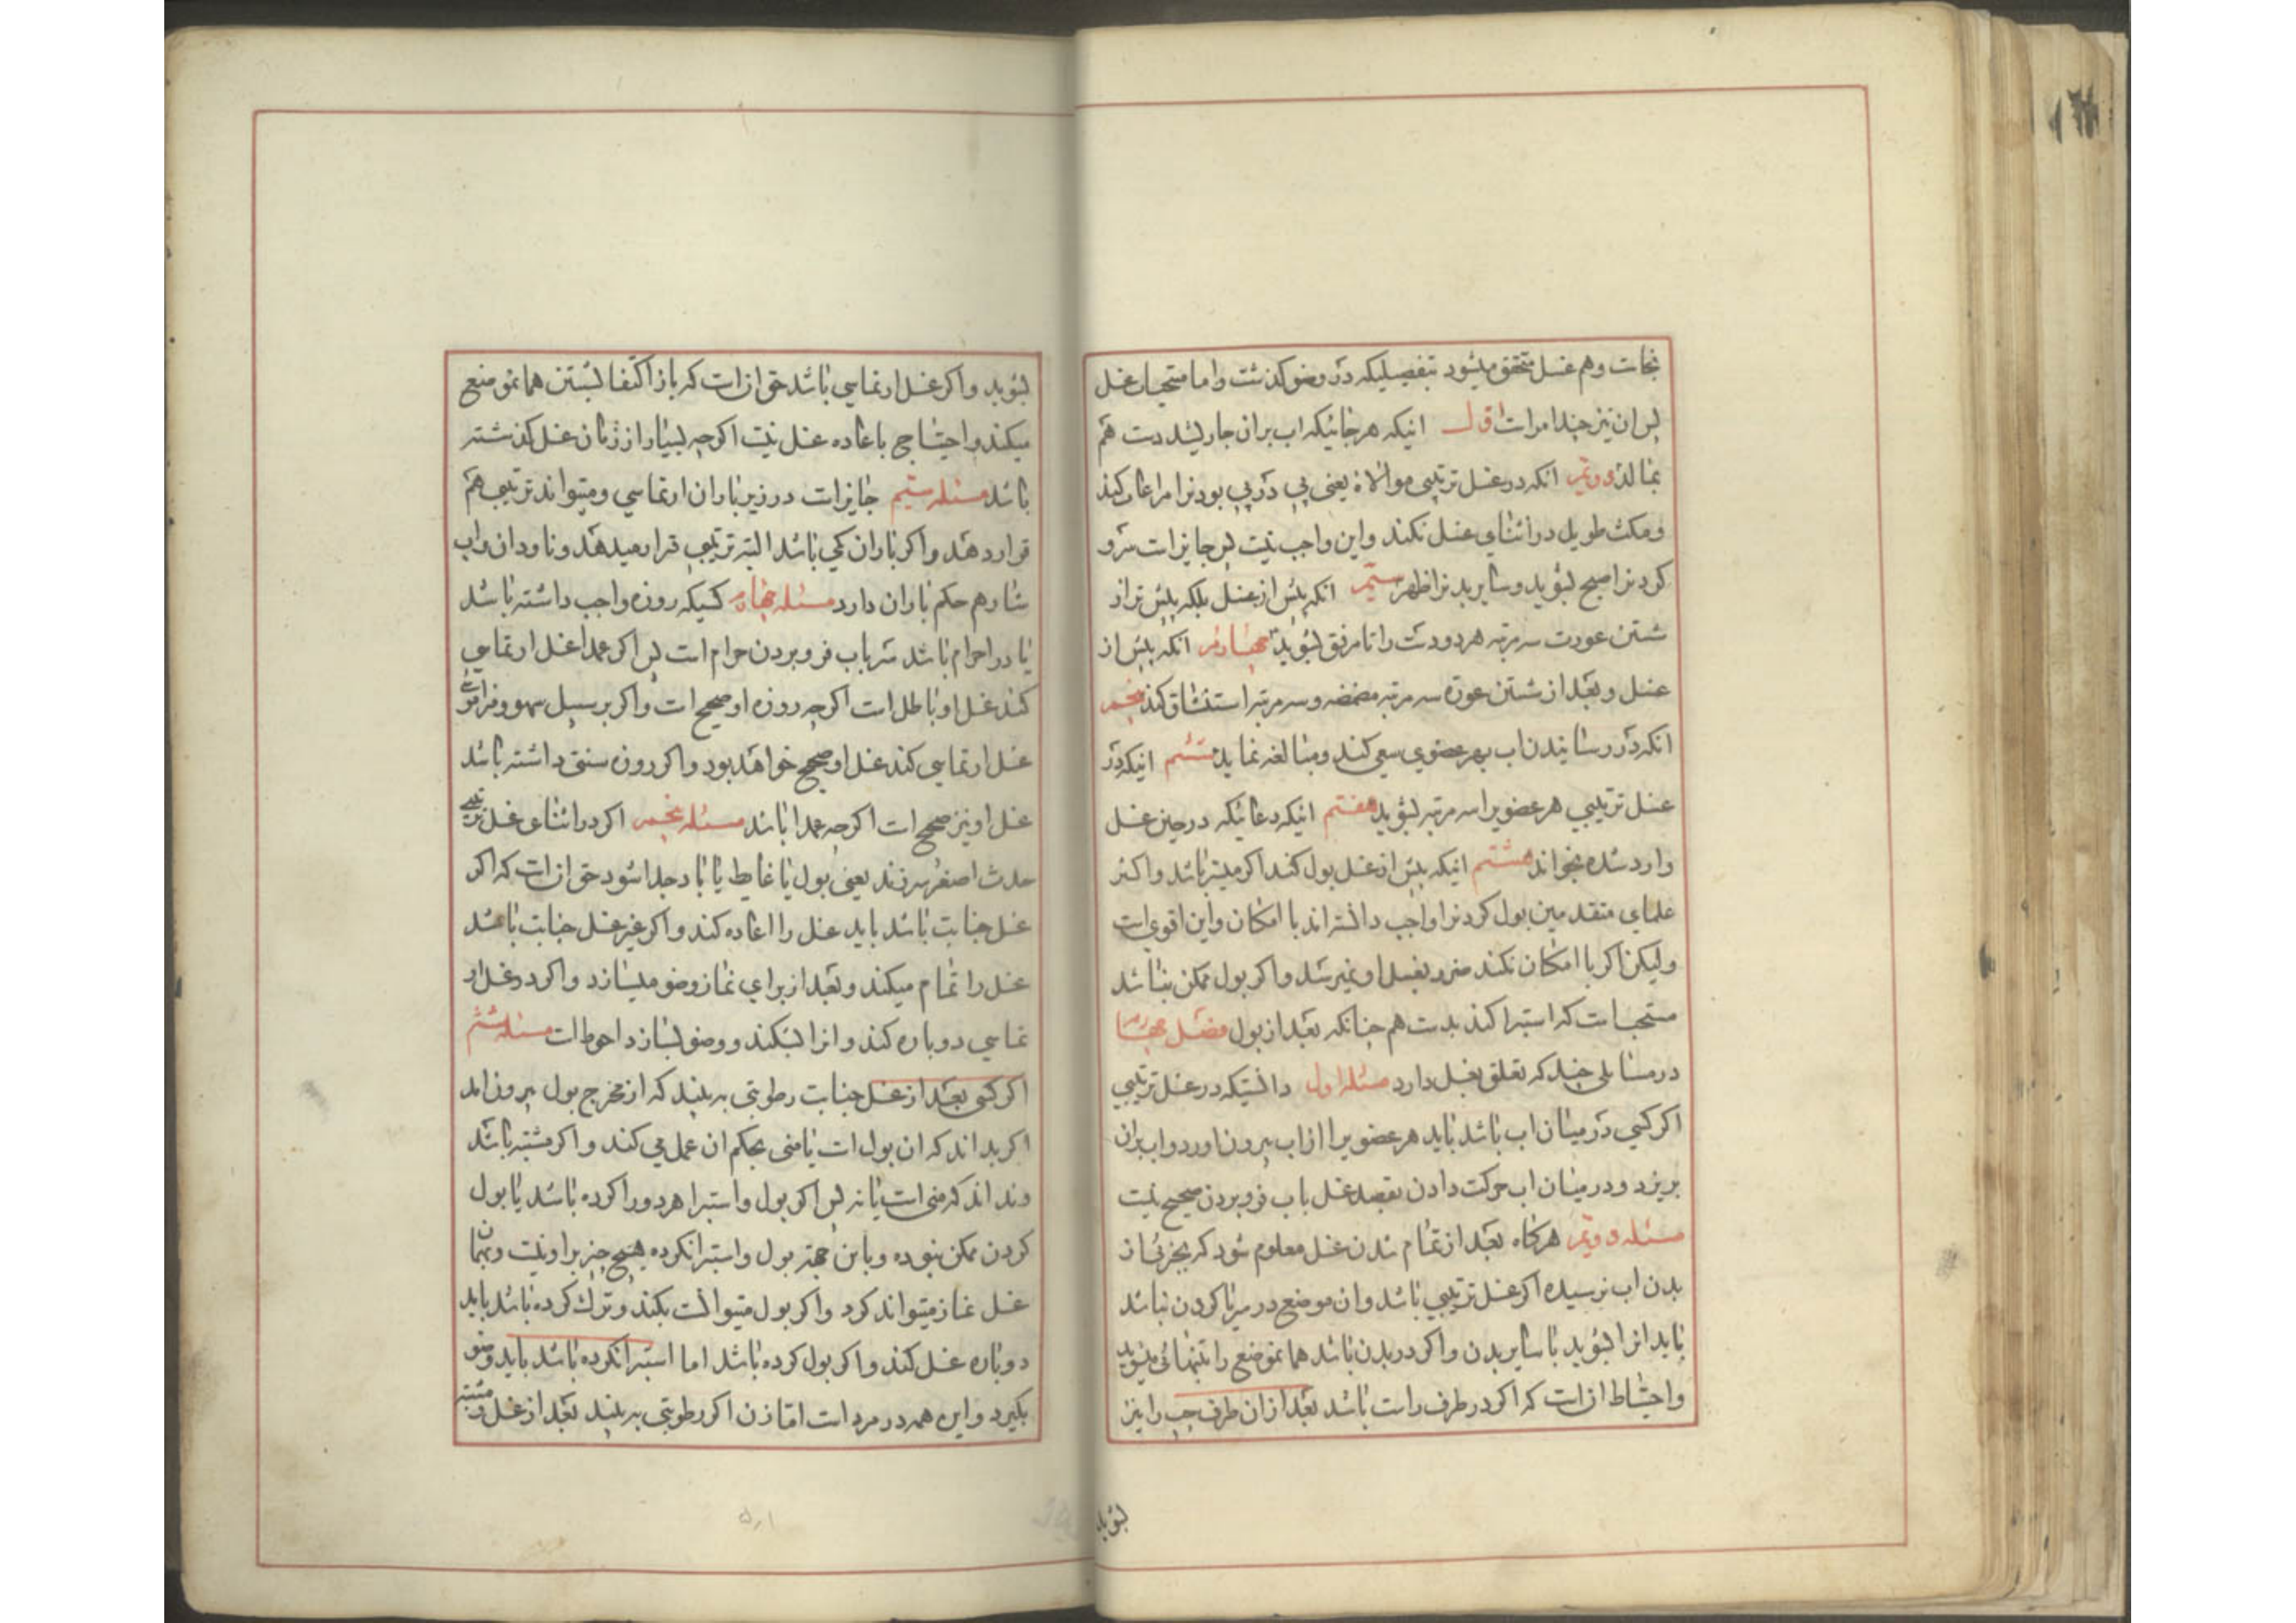 نجاست وهم غسل متحقق میشود بتفصیلیکه در وضو کذشت واما مستحبات غسل
پس ان نیز چند امر است اول انیکه هر جائیکه اب بران جاری شد دست هم
بمالد دویم انکه در غسل ترتیبی موالاة یعنی پی در پی بودنرا مراعات کند
ومکث طویل در اثنای غسل نکند واین واجب نیست پس جایز است سرو
کردنرا صبح بشوید وسایر بدنرا ظهر سیم انکه پیش از غسل بلکه پیش تر از
شستن عورت سه مرتبه هر دو دست را تا مرفق بشوید چهارم انکه پیش از
غسل وبعد از شستن عورة سه مرتبه مضمضه وسه مرتبه استنشاق کند پنجم
انکه در رسانیدن اب بهر عضوی سعی کند ومبالغه نماید ششم انیکه در
غسل ترتیبی هر عضویرا سه مرتبه بشوید هفتم انیکه دعائیکه در حین غسل
وارد شده بخواند هشتم انیکه پیش از غسل بول کند اکر میسر باشد واکثر
علمای متقدمین بول کردنرا واجب دانسته اند با امکان واین اقوی است
ولیکن اکر با امکان نکند ضرر بغسل او نمیرسد واکر بول ممکن نباشد
مستحب است که استبرا کند بدست هم چنانکه بعد از بول فصل چهارم
در مسایلی چند که تعلق بغسل دارد مسئله اول دانستیکه در غسل ترتیبی
اکر کسی در میان اب باشد باید هر عضویرا از اب بیرون اورد واب بران
بریزد ودر میان اب حرکت دادن بقصد غسل باب فرو بردن صحیح نیست
مسئله دویم هرکاه بعد از تمام شدن غسل معلوم شود که بجزئی از
بدن اب نرسیده اکر غسل ترتیبی باشد وان موضع در سر یا کردن نباشد
باید انرا بشوید با سایر بدن واکر در بدن باشد همانموضع را بتنهائی میشوید
واحتیاط انست که اکر در طرف راست باشد بعد ازان طرف چپ را نیز
بشوید
بشوید واکر غسل ارتماسی باشد حق انست که باز اکتفا بشستن همانموضع
میکند واحتیاجی باعاده غسل نیست اکرچه بسیار از زمان غسل کذشته
باشد مسئله سیم جایز است در زیر باران ارتماسی ومیتواند ترتیبی هم
قرار دهد واکر باران کمی باشد البته ترتیبی قرار میدهد وناودان واب
شار هم حکم باران دارد مسئله چهارم کسیکه روزه واجب داشته باشد
یا در احرام باشد سر باب فرو بردن حرام است پس اکر عمدا غسل ارتماسی
کند غسل او باطل است اکرچه روزه او صحیح است واکر بر سبیل سهو وفراموشی
غسل ارتماسی کند غسل او صحیح خواهد بود واکر روزه سنتی داشته باشد
غسل او نیز صحیح است اکرچه عمدا باشد مسئله پنجم اکر در اثنای غسل ترتیبی
حدث اصغر سر زند یعنی بول یا غایط یا باد جدا شود حق انست که اکر
غسل جنابت باشد باید غسل را اعاده کند واکر غیر غسل جنابت باشد
غسل را تمام میکند وبعد از برای نماز وضو میسازد واکر در غسل ار
تماسی دوباره کند وانرا بشکند ووضو بسازد احوط است مسئله ششم
اکر کسی بعد از غسل جنابت رطوبتی به بیند که از مخرج بول بیرون امد
اکر بداند که ان بول است یا منی بحکم ان عمل می کند واکر مشتبه باشد
ونداند که منی است یا نه پس اکر بول واستبرا هر دو را کرده باشد یا بول
کردن ممکن نبوده وباین جهة بول واستبرا نکرده هیچ چیز بر او نیست وبهمان
غسل نماز میتواند کرد واکر بول میتوانست بکند وترک کرده باشد باید
دوباره غسل کند واکر بول کرده باشد اما استبرا نکرده باشد باید وضو
بکیرد واین همه در مرد است اما زن اکر رطوبتی به بیند بعد از غسل ومشتبه